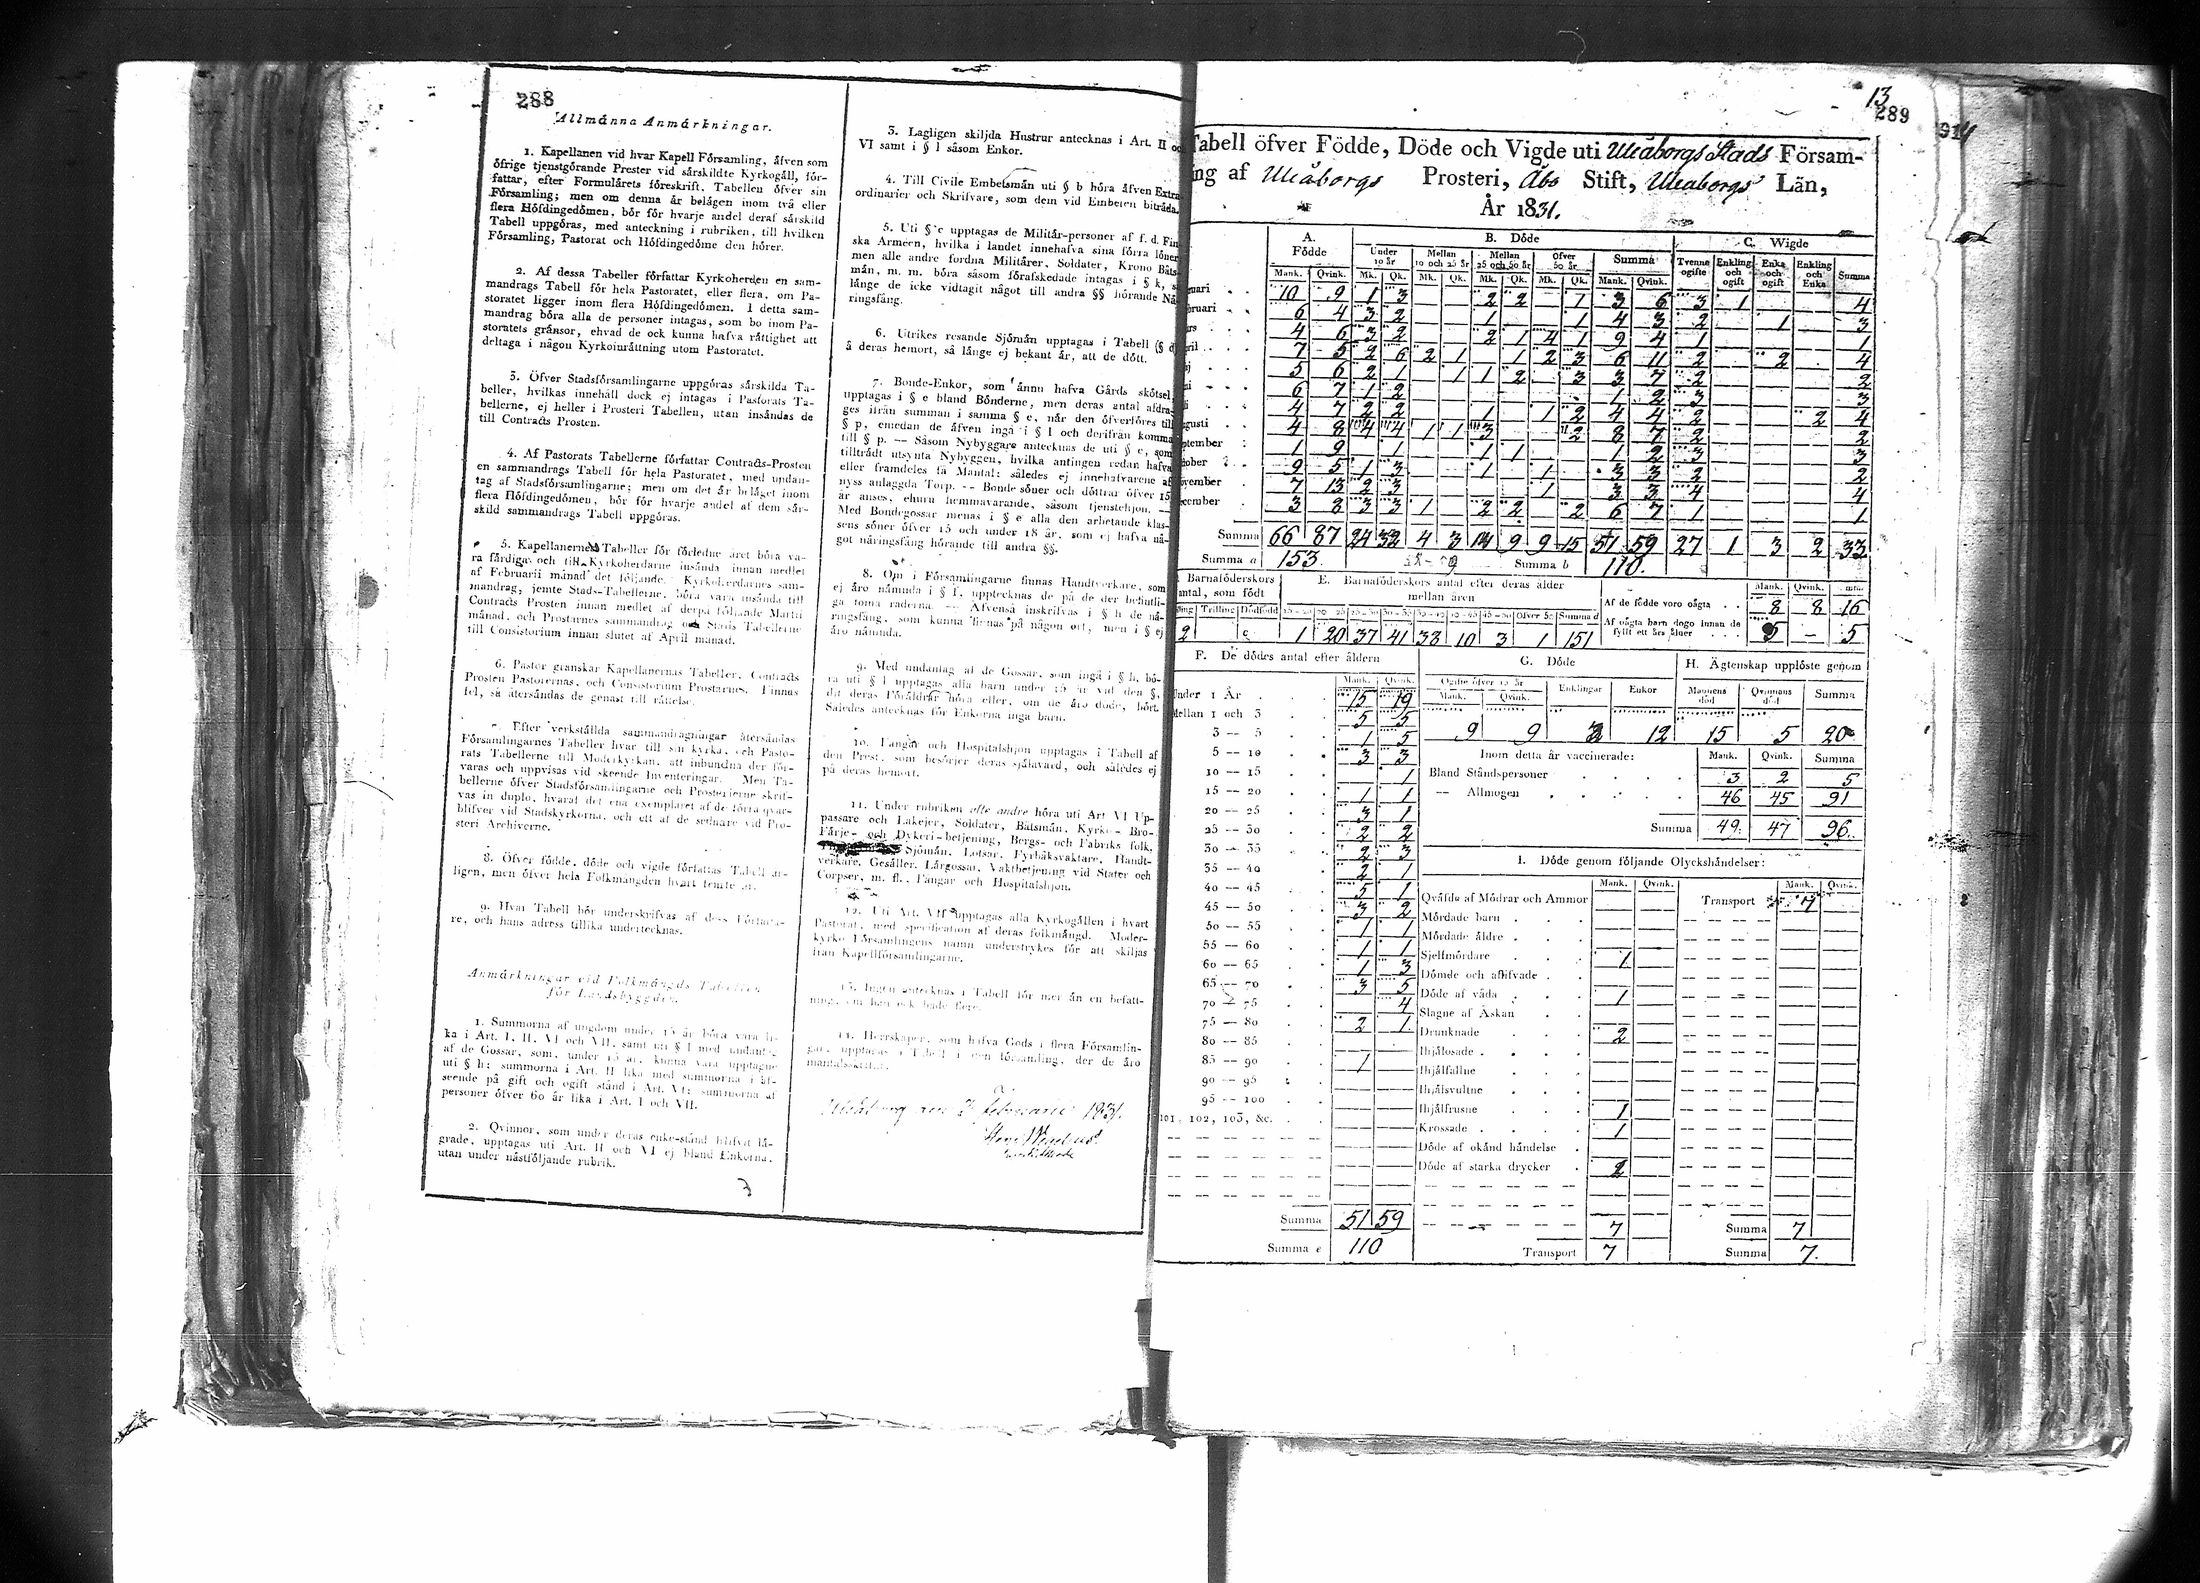 288
Allmänna Anmärkningar.
1. Kapellanen vid hvar Kapell Församling, äfven som
öfrige tjenstgörande Prester vid särskildte Kyrkogäll, för-
fattar, efter Formulärets föreskrift, Tabellen öfver sin
Församling; men om denna är belägen inom två eller
flera Höfdingedömen, bör för hvarje andel deraf särskild
Tabell uppgöras, med anteckning i rubriken, till hvilken
Församling, Pastorat och Höfdingedöme den hörer.
2. Af dessa Tabeller författar Kyrkoherden en sam-
mandrags Tabell för hela Pastoratet, eller flera, om Pa-
storatet ligger inom flera Höfdingedömen. I detta sam-
mandrag böra alla de personer intagas, som bo inom Pa-
storatets gränsor, ehvad de ock kunna hafva rättighet att
deltaga i någon Kyrkoinrättning utom Pastoratet.
3. Öfver Stadsförsamlingarne uppgöras särskilda Ta-
beller, hvilkas innehåll dock ej intagas i Pastorats Ta-
bellerne, ej heller i Prosteri Tabellen, utan insändas de
till Contracts Prosten.
4. Af Pastorats Tabellerne författar Contracts-Prosten
en sammandrags Tabell för hela Pastoratet, med undan-
tag af Stadsförsamlingarne; men om det är beläget inom
flera Höfdingedömen, bör för hvarje andel af dem sär-
skild sammandrags Tabell uppgöras.
5. Kapellanernes Tabeller för förledne året böra va-
ra färdiga och till Kyrkoherdarne insända innan medlet
af Februarii månad det följande. Kyrkoherdarnes sam-
mandrag, jemte Stads-Tabellerne, böra vara insända till
Contracts Prosten innan medlet af derpå följande Martii
månad, och Prostarnes sammandrag och Stads Tabellerne
till Consistorium innan slutet af April månad.
6. Pastor granskar Kapellanernas Tabeller, Contracts
Prosten Pastorernas, och Consistorium Prostarnes. Finnas
fel, så återsändas de genast till rättelse.
7. Efter verkställda sammandragningar återsändas
Församlingarnes Tabeller hvar till sin kyrka, och Pasto-
rats Tabellerne till Moderkyrkan, att inbundna der för-
varas och uppvisas vid skeende Inventeringar. Men Ta-
bellerne öfver Stadsförsamlingarne och Prosterierne skrif-
vas in duplo, hvaraf det ena exemplaret af de förra qvar-
blifver vid Stadskyrkorna, och ett af de sednare vid Pro-
steri Archiverne.
8. Öfver födde, döde och vigde författas Tabell år-
ligen, men öfver hela Folkmängden hvart femte år.
9. Hvar Tabell bör underskrifvas af dess Författa-
re, och hans adress tillika undertecknas.
Anmärkningar vid Folkmängds Tabellen
för Landsbyggden.
1. Summorna af ungdom under 15 år böra vara li-
ka i Art. I, II, VI och VII, samt uti § l med undantag
af de Gossar, som, under 15 år, kunna vara upptagne
uti § h; summorna i Art. II lika med summorna i af-
seende på gift och ogift stånd i Art. VI; summorna af
personer öfver 60 år lika i Art. I och VII.
2. Qvinnor, som under deras enke-stånd blifvit lä-
grade, upptagas uti Art. II och VI ej bland Enkorna,
utan under nästföljande rubrik.
3. Lagligen skiljda Hustrur antecknas i Art. II oc
VI samt i § l såsom Enkor.
4. Till Civile Embetsmän uti § b höra äfven Extra
ordinarier och Skrifvare, som dem vid Embeten biträda.
5. Uti § c upptagas de Militär-personer af f. d. Fin
ska Armeen, hvilka i landet innehafva sina förra löner
men alle andre fordna Militärer, Soldater, Krono Båts-
män, m. m. böra såsom förafskedade intagas i § k, s
länge de icke vidtagit något till andra §§ hörande Nä
ringsfång.
6. Utrikes resande Sjömän upptagas i Tabell (§ d
å deras hemort, så länge ej bekant är, att de dött.
7. Bonde-Enkor, som ännu hafva Gårds skötsel
upptagas i § e bland Bönderne, men deras antal afdra-
ges ifrån summan i samma § e, når den öfverföres till
§ p, emedan de äfven ingå i § l och derifrån komma
till § p. — Såsom Nybyggare antecknas de uti § e, som
tillträdt utsynta Nybyggen, hvilka antingen redan hafva
eller framdeles få Mantal; således ej innehafvarene af
nyss anlaggda Torp. — Bonde söner och döttrar öfver 15
år anses, ehuru hemmavarande, såsom tjenstehjon. —
Med Bondegossar menas i § e alla den arbetande klas-
sens söner öfver 15 och under 18 år, som ej hafva nå-
got näringsfång hörande till andra §§.
8. Om i Församlingarne finnas Handtverkare, som
ej äro nämnda i § f, upptecknas de på de der befintli-
ga toma raderna. — Äfvenså inskrifvas i § h de nä-
ringsfång, som kunna finnas på någon ort, men i § ej
äro nämnda.
9. Med undantag af de Gossar, som ingå i § h, bö-
ra uti § l upptagas alla barn under 15 år vid den §,
dit deras Föräldrar höra eller, om de äro döde, hört.
Således antecknas för Enkorna inga barn.
10. Fångar och Hospitalshjon upptagas i Tabell af
den Prest, som besörjer deras själavård, och således ej
på deras hemort.
11. Under rubriken alle andre höra uti Art VI Up-
passare och Lakejer, Soldater, Båtsmän, Kyrko- Bro-
Färje- och Dykeri-betjening, Bergs- och Fabriks folk,
Sjömän, Lotsar, Fyrbåksvaktare, Handt-
verkare, Gesäller, Lärgossar, Vaktbetjening vid Stater och
Corpser, m. fl., Fångar och Hospitalshjon.
12. Uti Art. VII upptagas alla Kyrkogällen i hvart
Pastorat, med specification af deras folkmängd. Moder-
kyrko Församlingens namn understrykes för att skiljas
från Kapellförsamlingarne.
13. Ingen antecknas i Tabell för mer än en befatt-
ning, om han ock hade flere.
14. Herrskaper, som hafva Gods i flera Församlin-
gar, upptagas i Tabell i den församling, der de äro
mantalsskrifne.
Uleåborg den 3 februarii 1831.
13
289
Tabell öfver Födde, Döde och Vigde uti Uleåborgs Stads Försam-
ing af Uleåborgs Prosteri, Åbo Stift, Uleåborgs Län,
År 1831.
A. Födde B. Döde C. Wigde
Under 10 år Mellan 10 och 25 år Mellan 25 och 50 år Öfver 50 år Summa Tvenne ogifte Enkling och ogift Enka och ogift Enkling och Enka Summa
Mank. Qvink. Mk. Qk. Mk. Qk. Mk. Qk. Mk. Qk. Mank. Qvink.
nuari 10 9 1 3 2 2 1 3 6 3 1 4
bruari 6 4 3 2 1 1 4 3 2 1 3
ars 4 6 3 2 2 1 4 1 9 4 1 1
pril 7 5 2 6 2 1 1 2 3 6 11 2 2 4
aj 5 6 2 1 1 1 2 3 3 7 2 2
ni 6 7 1 2 1 2 3 3
li 4 7 2 2 1 1 2 4 4 2 2 4
gusti 4 8 4 4 1 1 3 2 8 7 2 2
ptember 1 9 1 1 1 1 2 3 3
tober 9 5 1 3 1 1 3 3 2 2
ovember 7 13 2 3 1 3 3 4 4
ecember 3 8 3 3 1 2 2 2 6 7 1 1
Summa 66 87 24 32 4 3 14 9 9 15 51 59 27 1 3 2 33
Summa a 153 Summa b 110.
Barnaföderskors antal, som födt E. Barnaföderskors antal efter deras ålder mellan åren
Trilling Dödfödd 15-20 20-25 25-30 30-35 35-40 40-45 45-50 Öfver 50 Summa d
2 1 20 37 41 38 10 3 1 151
Mank. Qvink.
Af de födde voro oägta 8 8 16
Af oägta barn dogo innan de fyllt ett års ålder 5 — 5
F. De dödes antal efter åldern
Mank. Qvink.
Under 1 År 15 19
Mellan 1 och 3 5 5
3 — 5 1 5
5 — 10 3 3
10 — 15 1
15 — 20 1 1
20 — 25 3 1
25 — 30 2 2
30 — 35 2 3
35 — 40 2 1
40 — 45 5 1
45 — 50 3 2
50 — 55 1 1
55 — 60 1 1
60 — 65 1 3
65 — 70 3 5
70 — 75 4
75 — 80 2 1
80 — 85
85 — 90 1
90 — 95
95 — 100
101, 102, 103, &c.
Summa 51 59
Summa e 110
G. Döde
Ogifte öfver 15 år Enklingar Enkor
Mank. Qvink.
9 9 12
H. Ägtenskap upplöste genom
Mannens död Qvinnans död Summa
15 5 20
Inom detta år vaccinerade: Mank. Qvink. Summa
Bland Ståndspersoner 3 2 5
— Allmogen 46 45 91
Summa 49. 47 96.
I. Döde genom följande Olyckshändelser:
Mank. Qvink. Mank. Qvink.
Qväfde af Mödrar och Ammor Transport 7
Mördade barn
Mördade äldre
Sjelfmördare 1
Dömde och aflifvade
Döde af våda 1
Slagne af Åskan
Drunknade 2
Ihjälosade
Ihjälfallne
Ihjälsvultne
Ihjälfrusne 1
Krossade 1
Döde af okänd händelse
Döde af starka drycker 2
7 Summa 7
Transport 7 Summa 7.